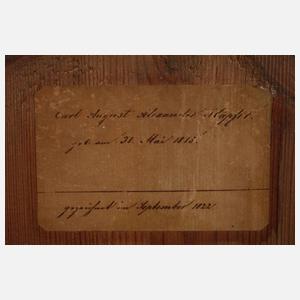 Carl August Alexander
geb. am 31. Mai 1815.
gezeichnet im September 1822.